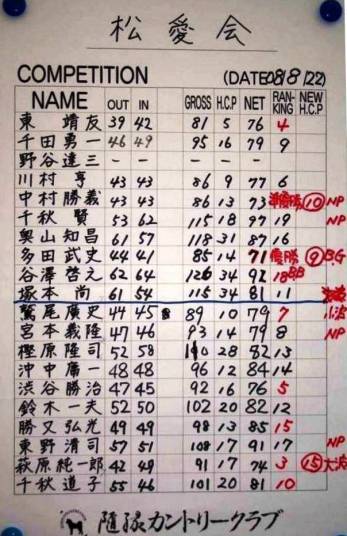 松愛会
COMPETITION (DATE 08/8/22)
NAME OUT IN GROSS H.C.P NET RAN-KING NEW H.C.P
東 靖友 39 42 81 5 76 4
千田勇一 46 49 95 16 79 9
野谷達三 – – – – –
川村 亨 43 43 86 9 77 6
中村勝義 43 43 86 13 73 準優勝 ⑩ NP
千秋 賢 53 62 115 18 97 19 NP
奥山知昌 61 57 118 31 87 16
多田武史 44 41 85 14 71 優勝 ⑨ BG
谷澤啓元 62 64 126 34 92 18 BB
塚本 尚 61 54 115 34 81 11
鷲尾廣史 44 45 89 10 79 7
宮本義隆 47 46 93 14 79 8 NP
樫原隆司 52 58 110 28 82 13
沖中廣一 48 48 96 12 84 14
渋谷勝治 47 45 92 16 76 5
鈴木一夫 52 50 102 20 82 12
勝又弘光 49 49 98 13 85 15
東野清司 57 51 108 17 91 17 NP
萩原純一郎 42 49 91 17 74 3 ⑮ 大波
千秋道子 55 46 101 20 81 10
随縁カントリークラブ